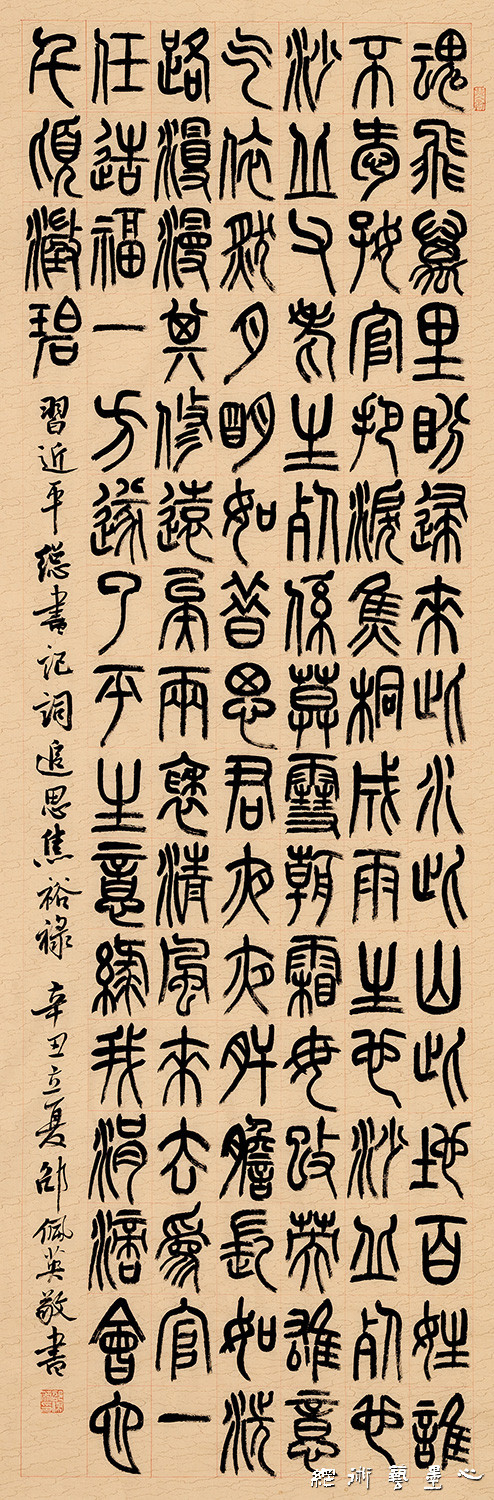 魂飛萬里盼歸來此水此山此地百姓誰
不愛好官把淚焦桐成雨生也沙丘死也
沙丘父老生死係暮雪朝霜毋改英雄意
气依然月明如昔思君夜夜肝膽長如洗
路漫漫其修遠矣兩袖清風來去為官一
任造福一方遂了平生意綠我涓滴會它
千頃澂碧
習近平總書記詞追思焦裕禄 辛丑立夏邵佩英敬書
心墨藝術